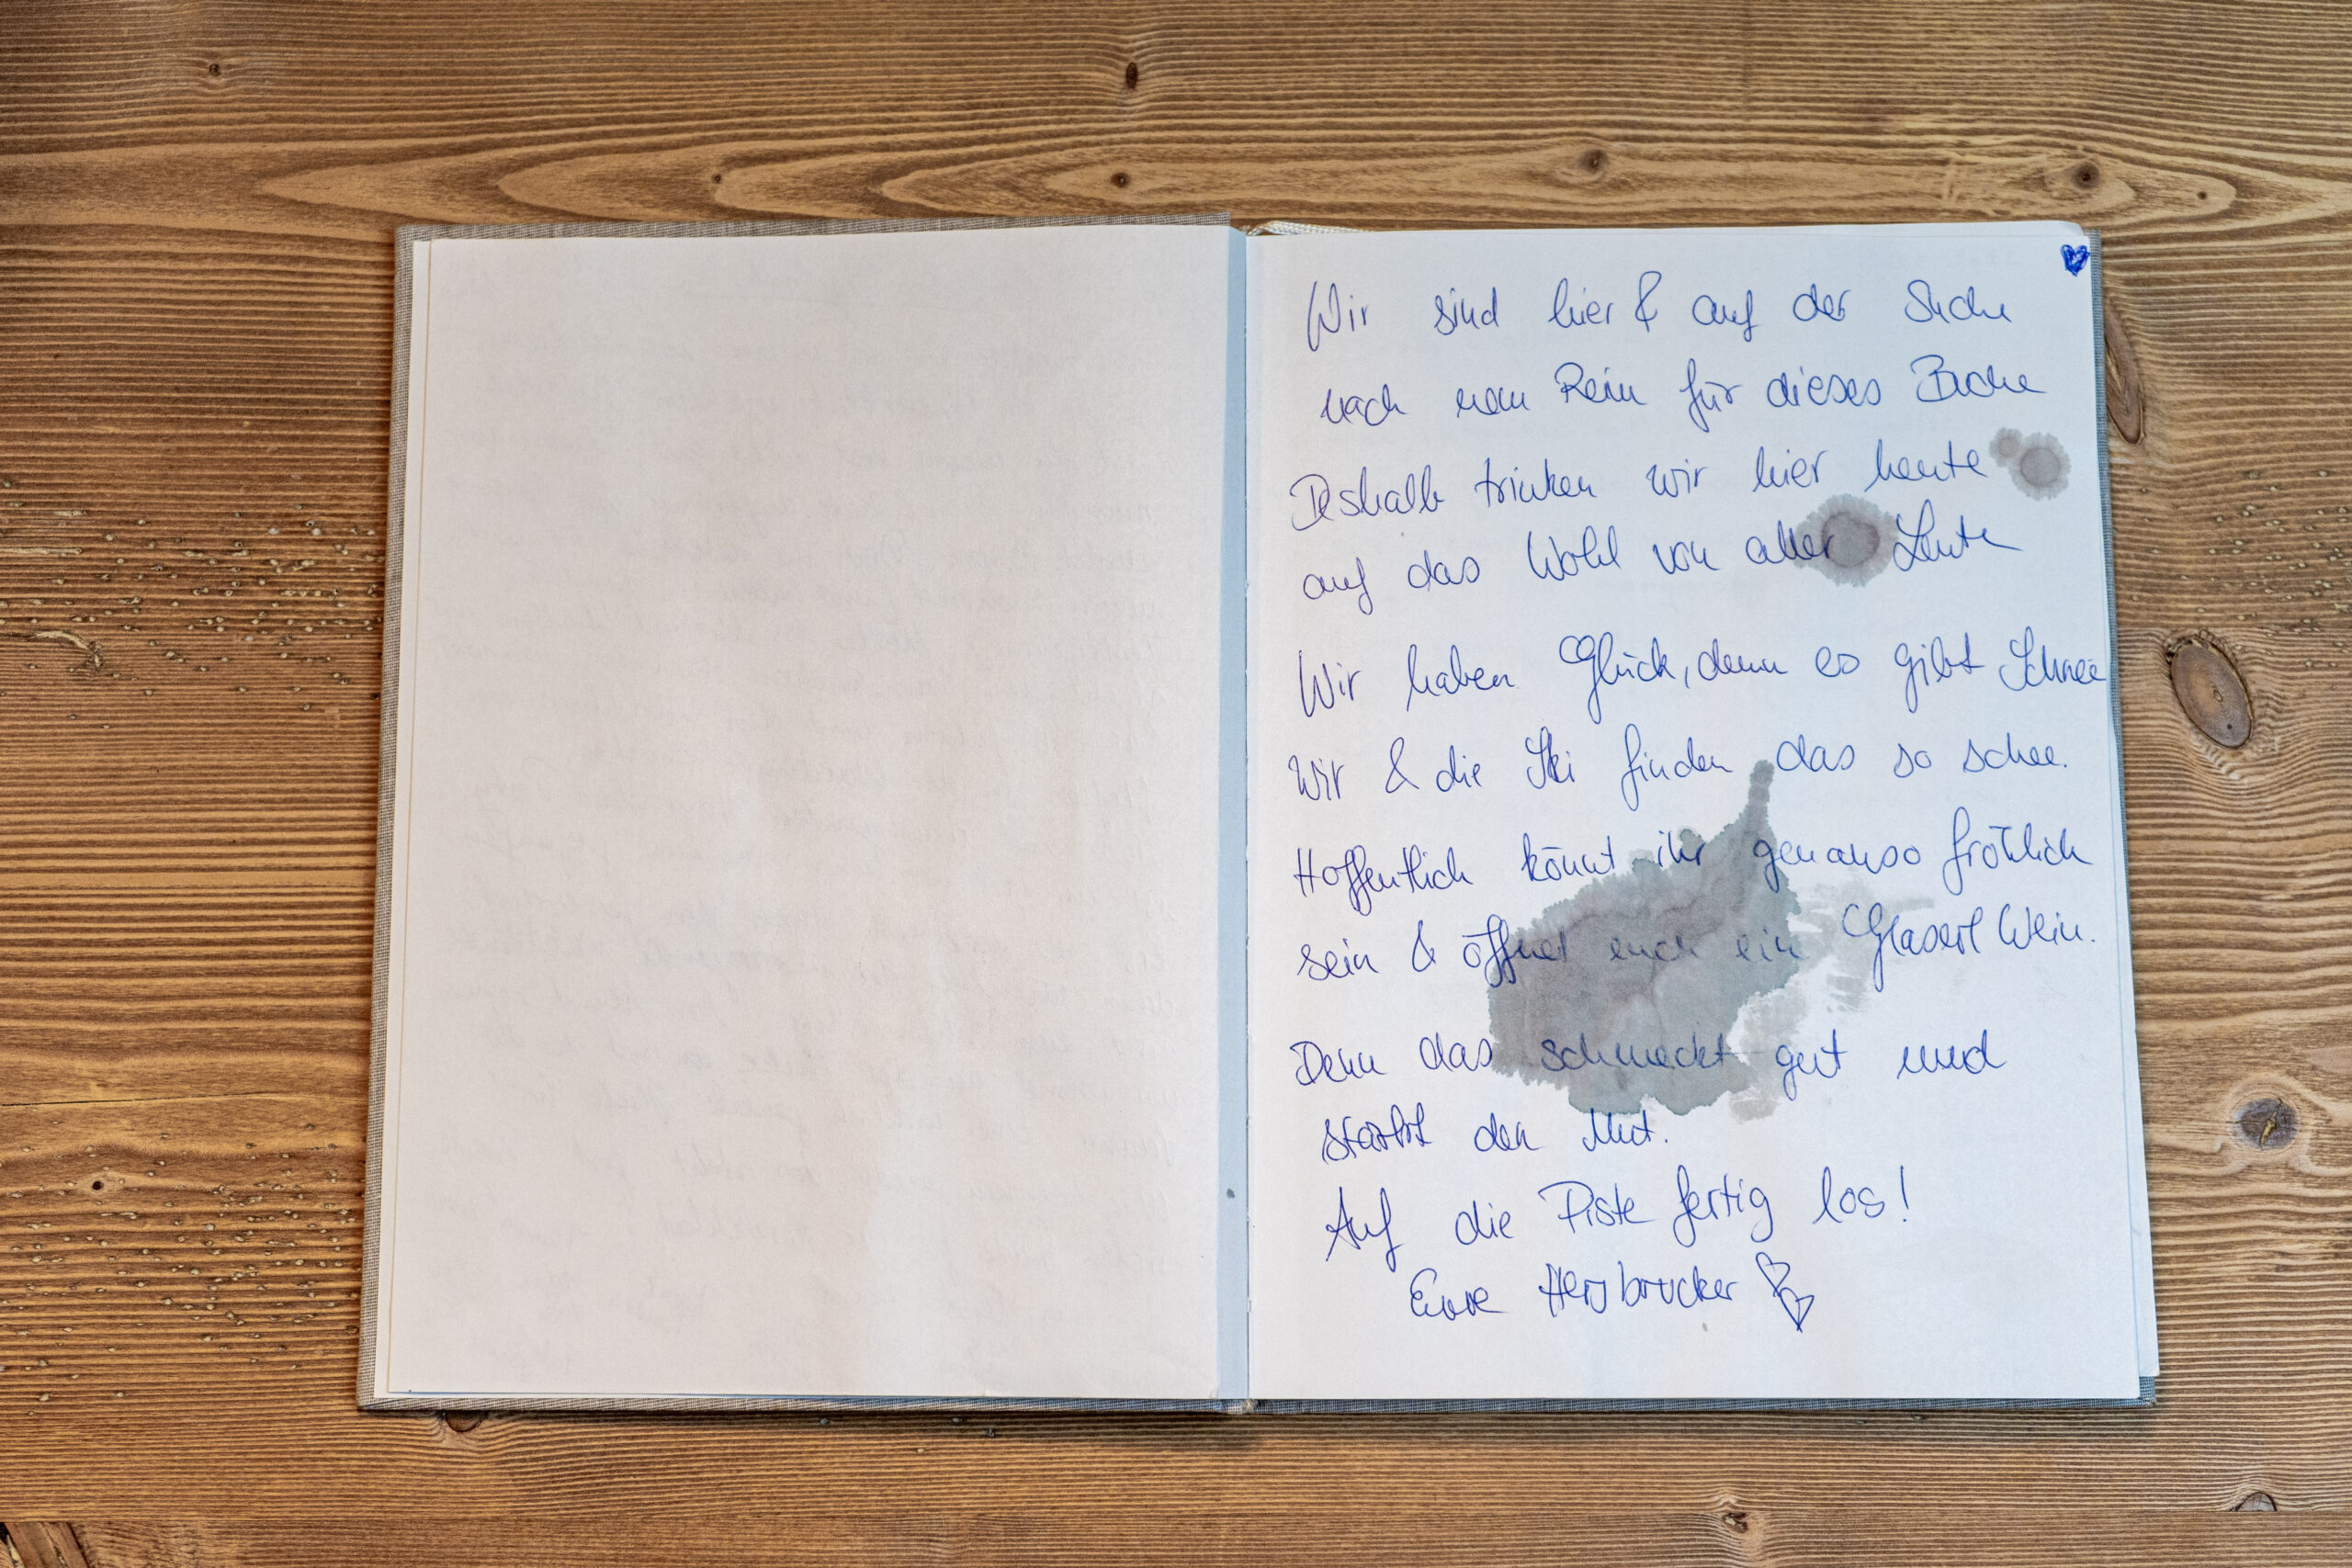 Wir sind hier & auf der Suche
nach nem Reim für dieses Buche
Deshalb trinken wir hier heute
auf das Wohl von aller Leute
Wir haben Glück, denn es gibt Schnee
Wir & die Ski finden das so schee.
Hoffentlich könnt ihr genauso fröhlich
sein & öffnet euch ein Glaserl Wein.
Denn das schmeckt gut und
stärkt den Mut.
Auf die Piste fertig los!
Eure Hersbrucker